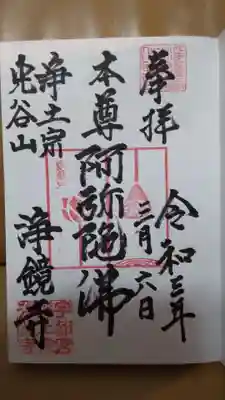 奉拝
令和三年
三月六日
本尊阿弥陀佛
浄土宗
兜谷山
浄鏡寺